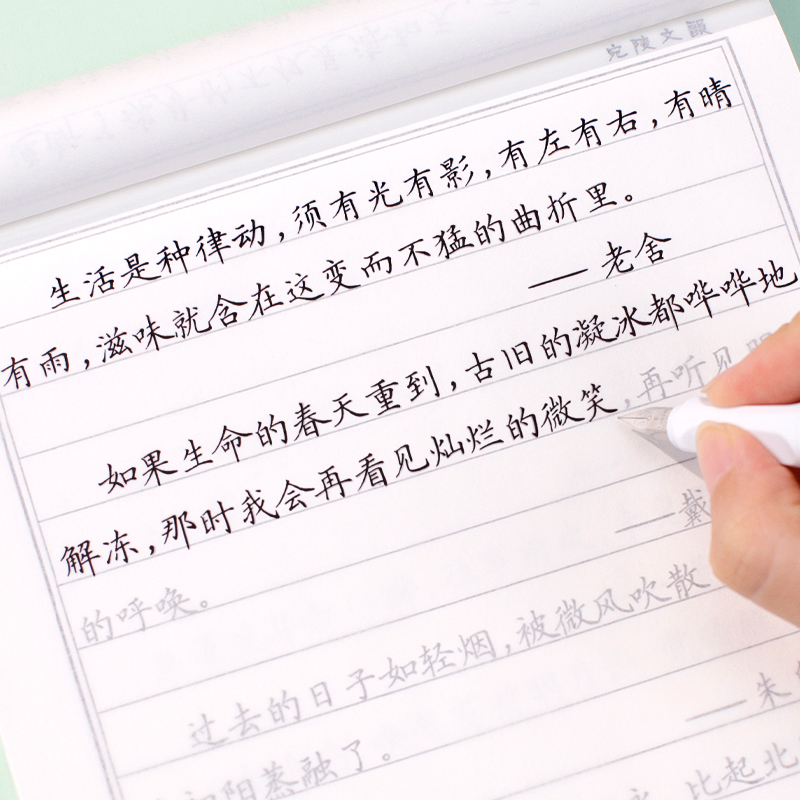 生活是种律动，须有光有影，有左有右，有晴
有雨，滋味就含在这变而不猛的曲折里。
—— 老舍
如果生命的春天重到，古旧的凝冰都哗哗地
解冻，那时我会再看见灿烂的微笑，再听见
的呼唤。
——戴
过去的日子如轻烟，被微风吹散
——朱
阳蒸融了。
比起北